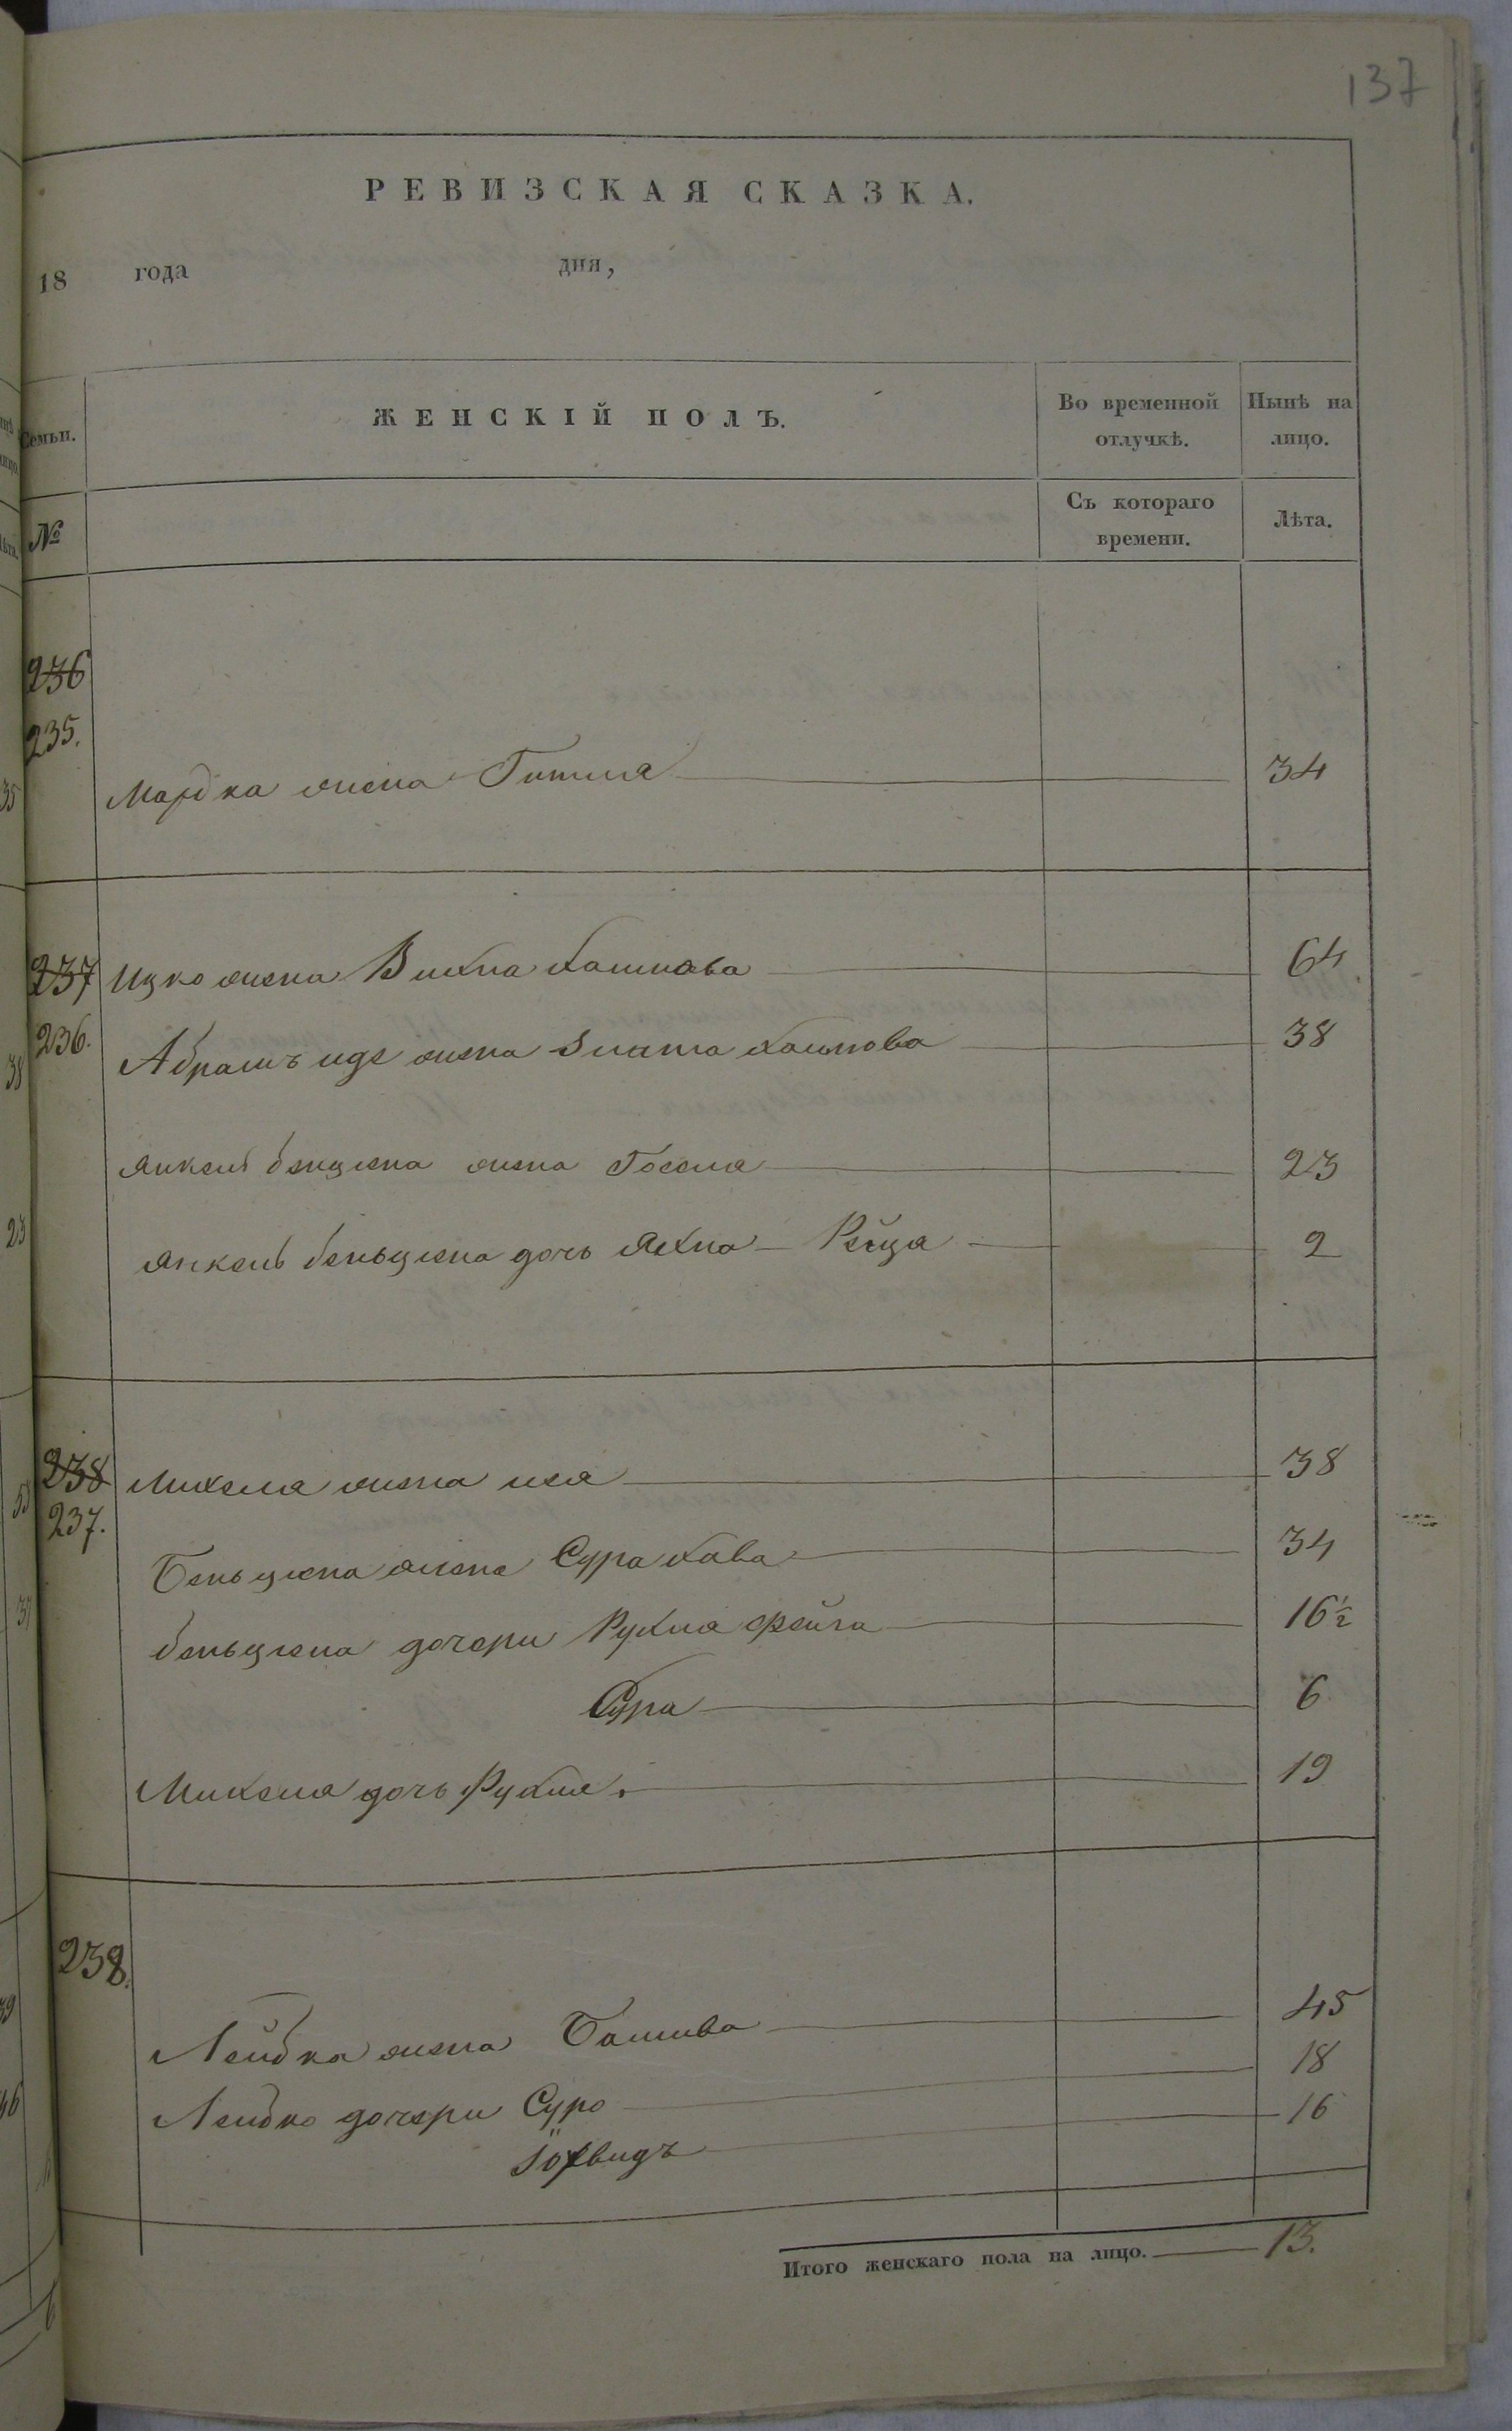 137
РЕВИЗСКАЯ СКАЗКА.
18 года дня,
Семьи. ЖЕНСКІЙ ПОЛЪ. Во временной отлучкѣ. Нынѣ на лицо.
№ Съ котораго времени. Лѣта.
236
235.
Мардка жена Гитля 34
237 Ицко жена Вихна Хаимова 64
236.
Абрамъ жена Злата Хаимова 38
Янкель Бенциона жена Госеля 23
Янкель Беньциона дочь Яхна Рейза 2
238 Михеля жена Лея 38
237.
Беньциона жена Сура Хава 34
Беньциона дочери Рухля Фейга 16½
Сура 6
Михеля дочь Рухля. 19
238.
Лейбка жена Башива 45
Лейбко дочери Суро 18
16
Итого женскаго пола на лицо. 13.